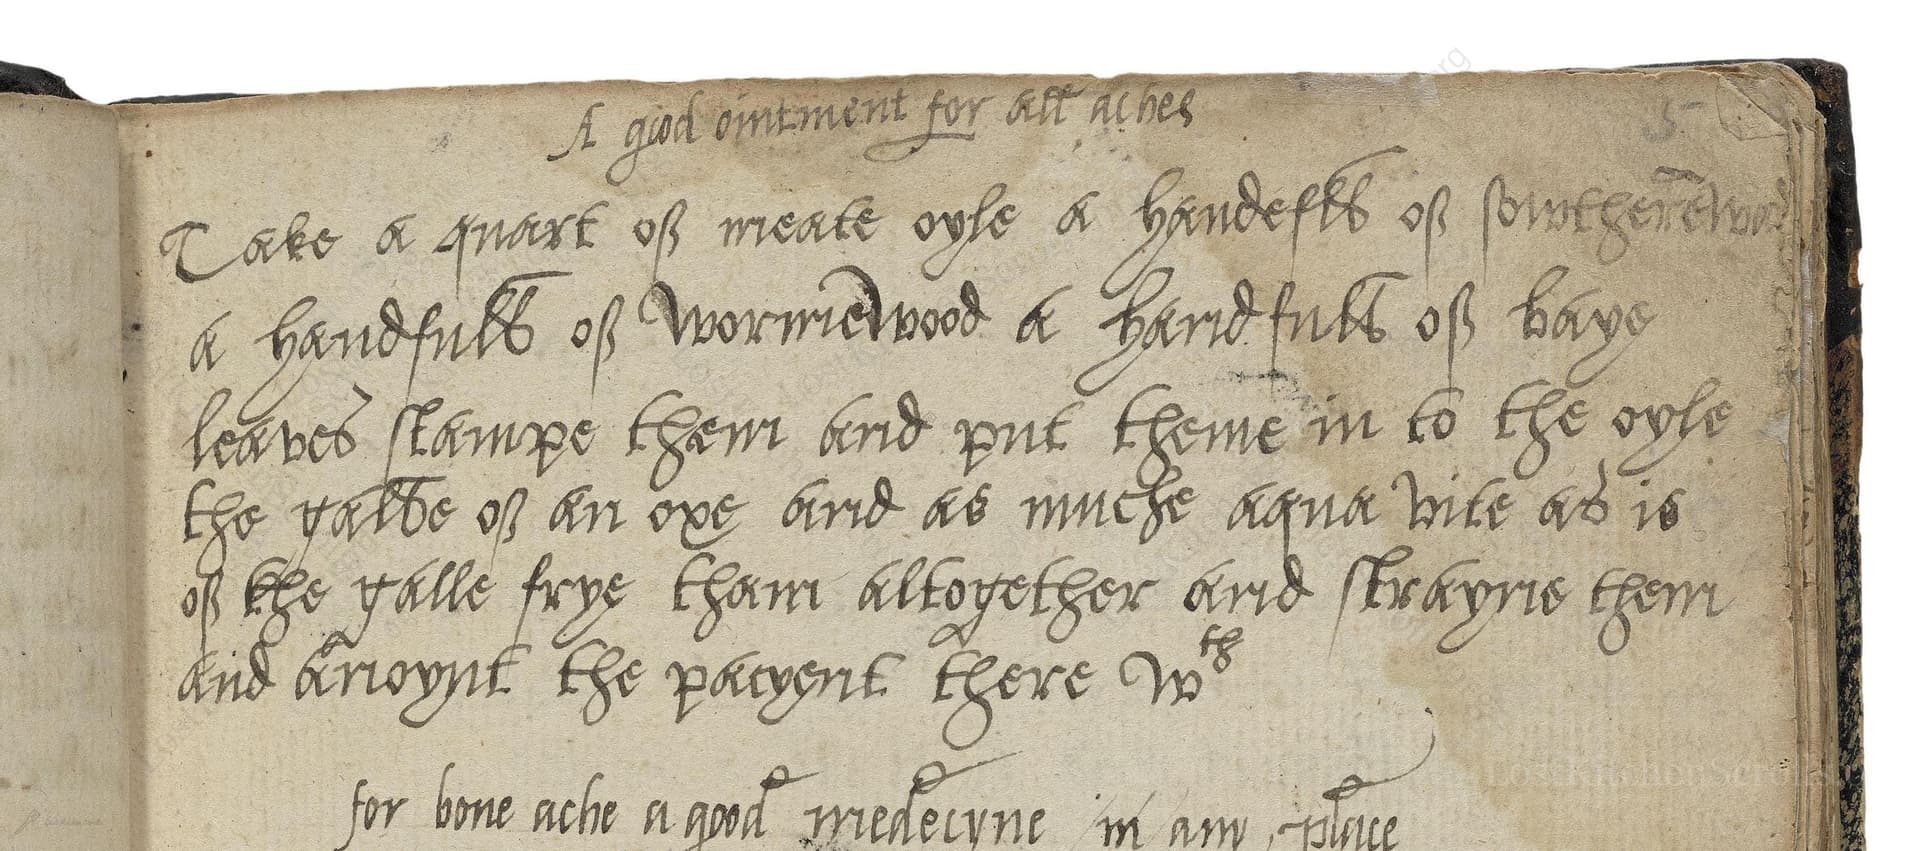 A good ointment for all aches
5
Take a quart off meate oyle a handefull off sowtherēwood
a handfull off wormēwood a handfull off baye
leaves stampe them and put theme in to the oyle
the galle off an oxe and as muche aqua vite as is
off the galle frye tham altogether and strayne them
and anoynt the pacyent there wth
for bone ache a good medecyne in any place
LostKitchenScrolls